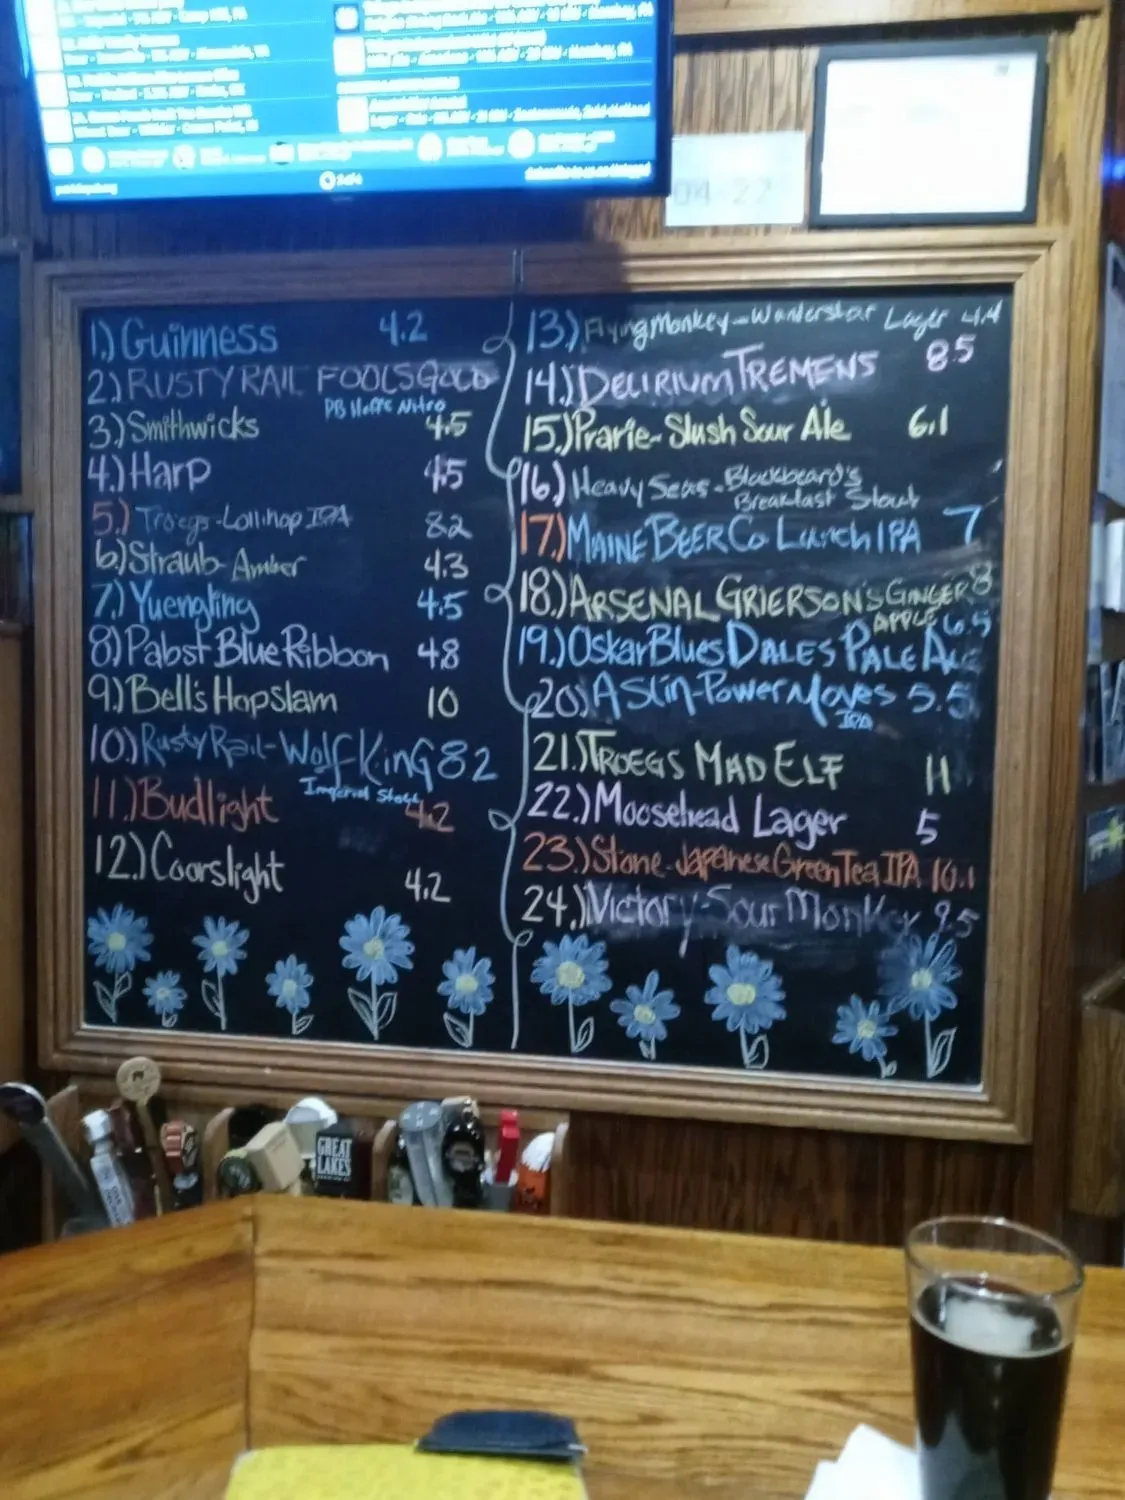 1.) Guinness 4.2
2.) RUSTY RAIL FOOLS GOLD
PB Hefe Nitro
3.) Smithwicks 4.5
4.) Harp 4.5
5.) Troegs-Lollihop IPA 82
6.) Straub Amber 4.3
7.) Yuengling 4.5
8.) Pabst Blue Ribbon 48
9.) Bell's Hopslam 10
10.) Rusty Rail-Wolf King 82
Imperial Stout
11.) Budlight 4.2
12.) Coorslight 4.2
13.) Flying Monkey-Wanderstar Lager 4.4
14.) DELIRIUM TREMENS 8.5
15.) Prarie-Slush Sour Ale 6.1
16.) Heavy Seas-Blackbeard's
Breakfast Stout
17.) MAINE BEER CO LUNCH IPA 7
18.) ARSENAL GRIERSON'S GINGER 8
APPLE
19.) Oskar Blues DALES PALE ALE 6.5
20.) ASlin-Power Moves 5.5
IPA
21.) TROEGS MAD ELF 11
22.) Moosehead Lager 5
23.) Stone-Japanese Green Tea IPA 10.1
24.) Victory-Sour Monkey 9.5
04-22
GREAT
LAKES